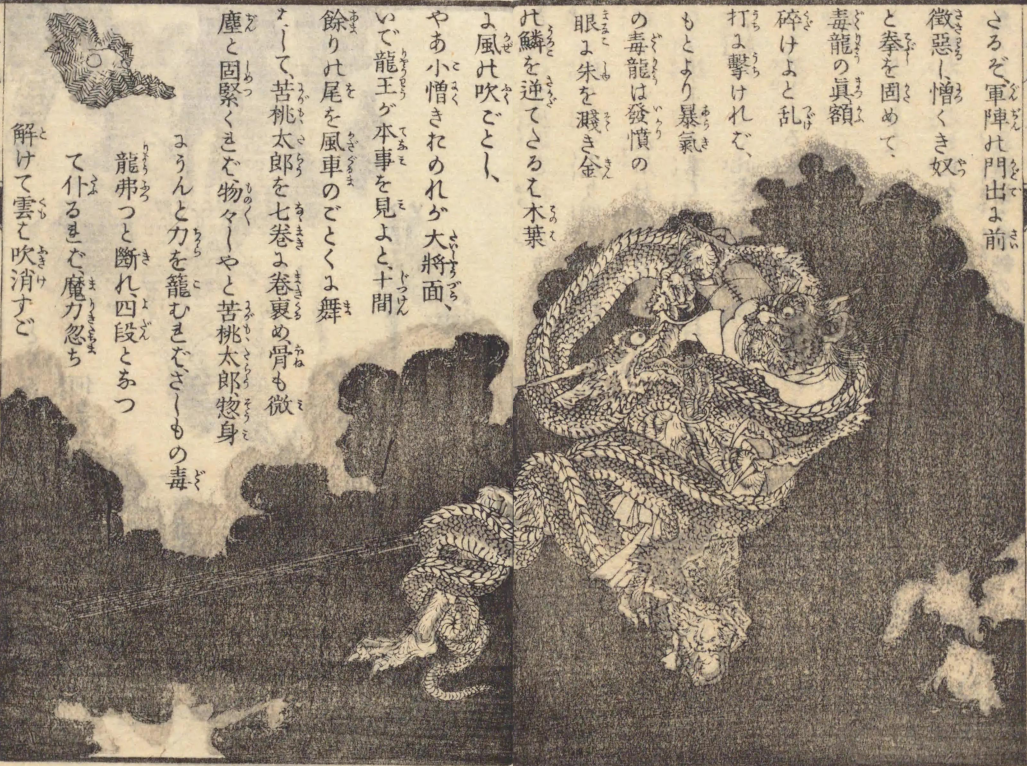 さるぞ、軍陣の門出に前
徴惡し、憎くき奴
と拳を固めて、
毒龍の眞額
碎けよと乱
打に擊けれバ、
もとより暴氣
の毒龍は發憤の
眼に朱を濺き、金
の鱗を逆てたるハ木葉
に風の吹ごとし、
やあ小憎きおのれが大將面、
いで龍王が本事を見よと、十間
餘りの尾を風車のごとくに舞
して、苦桃太郎を七巻に巻裹め骨も微
塵と固緊くれバ、物々しやと苦桃太郎惣身
にうんと力を籠むれバ、さしもの毒
龍弗つと斷れ、四段となつ
て仆るれバ、魔力忽ち
解けて雲ハ吹消すご